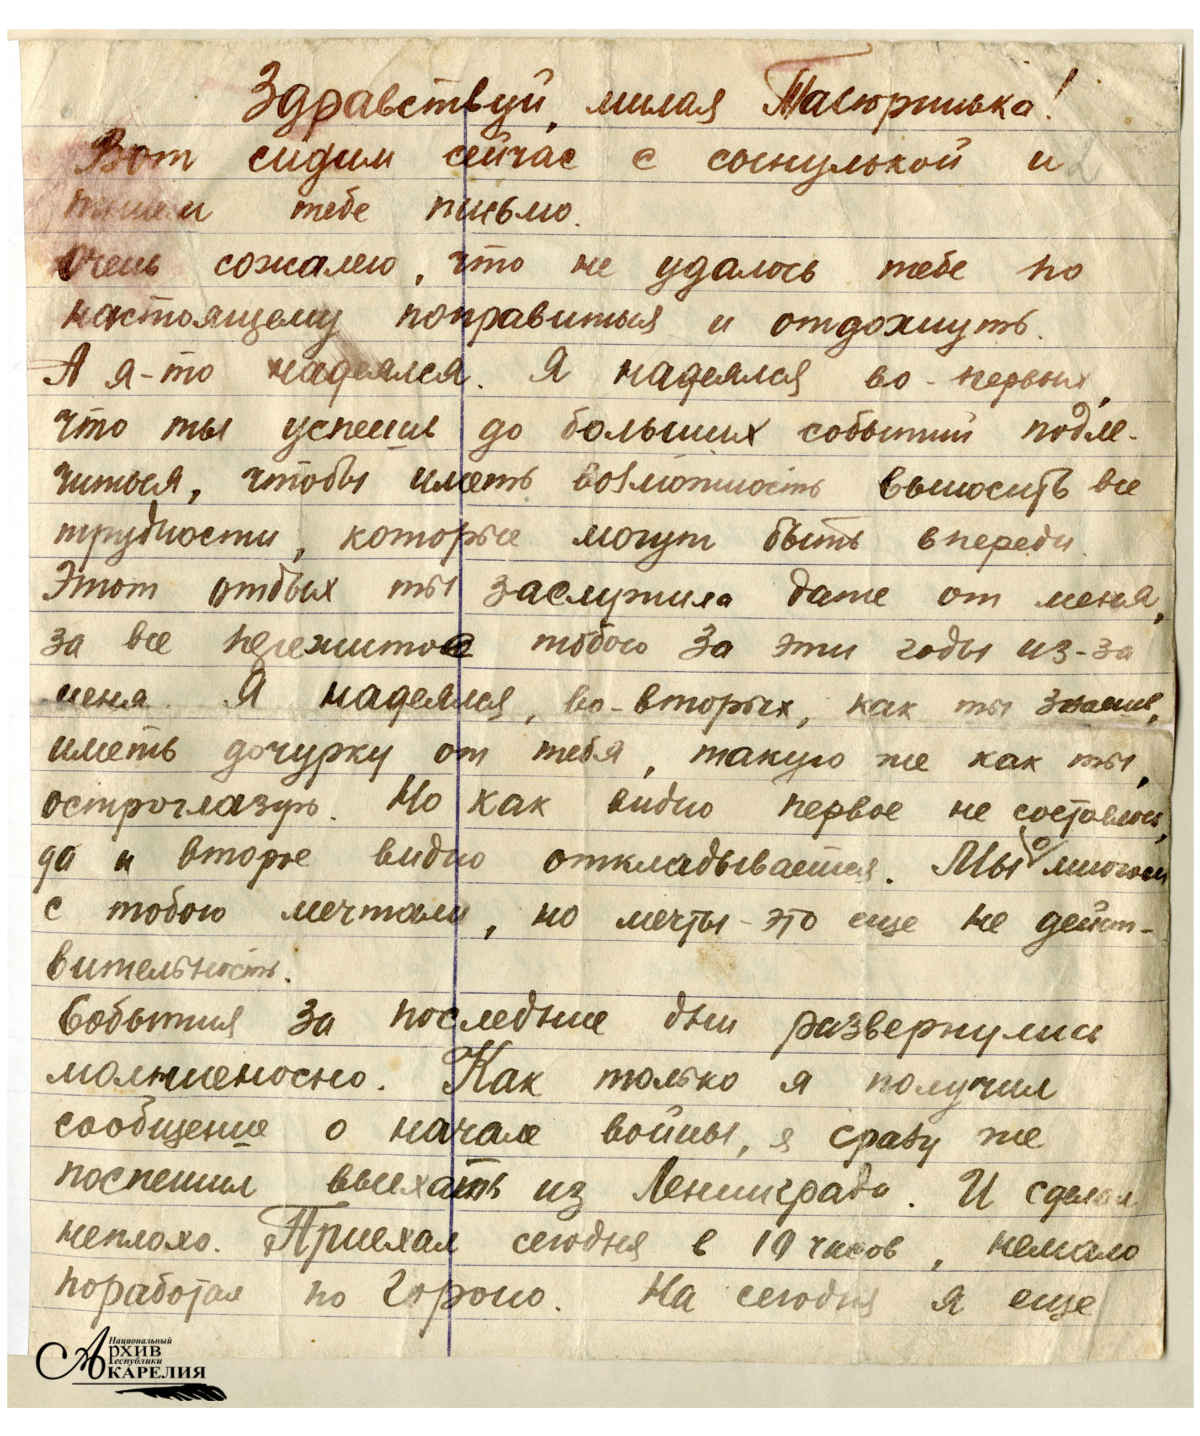 Здравствуй, милая Тасюринька!
Вот сидим сейчас с соснулькой и
пишем тебе письмо.
Очень сожалею, что не удалось тебе по
настоящему поправиться и отдохнуть.
А я-то надеялся. Я надеялся во-первых,
что ты успеешь до больших событий подле-
читься, чтобы иметь возможность выносить все
трудности, которые могут быть впереди.
Этот отдых ты заслужила даже от меня,
за все пережитое тобою за эти годы из-за
меня. Я надеялся, во-вторых, как ты знаешь,
иметь дочурку от тебя, такую же как ты,
остроглазую. Но как видно первое не состоялось,
да и второе видно откладывается. Мы о многом
с тобою мечтали, но мечты-это еще не дейст-
вительность.
События за последние дни развернулись
молниеносно. Как только я получил
сообщение о начале войны, я сразу же
поспешил выехать из Ленинграда. И сделал
неплохо. Приехал сегодня в 10 часов, немало
поработал по Гороно. На сегодня я еще
Национальный
Архив
Республики
Карелия